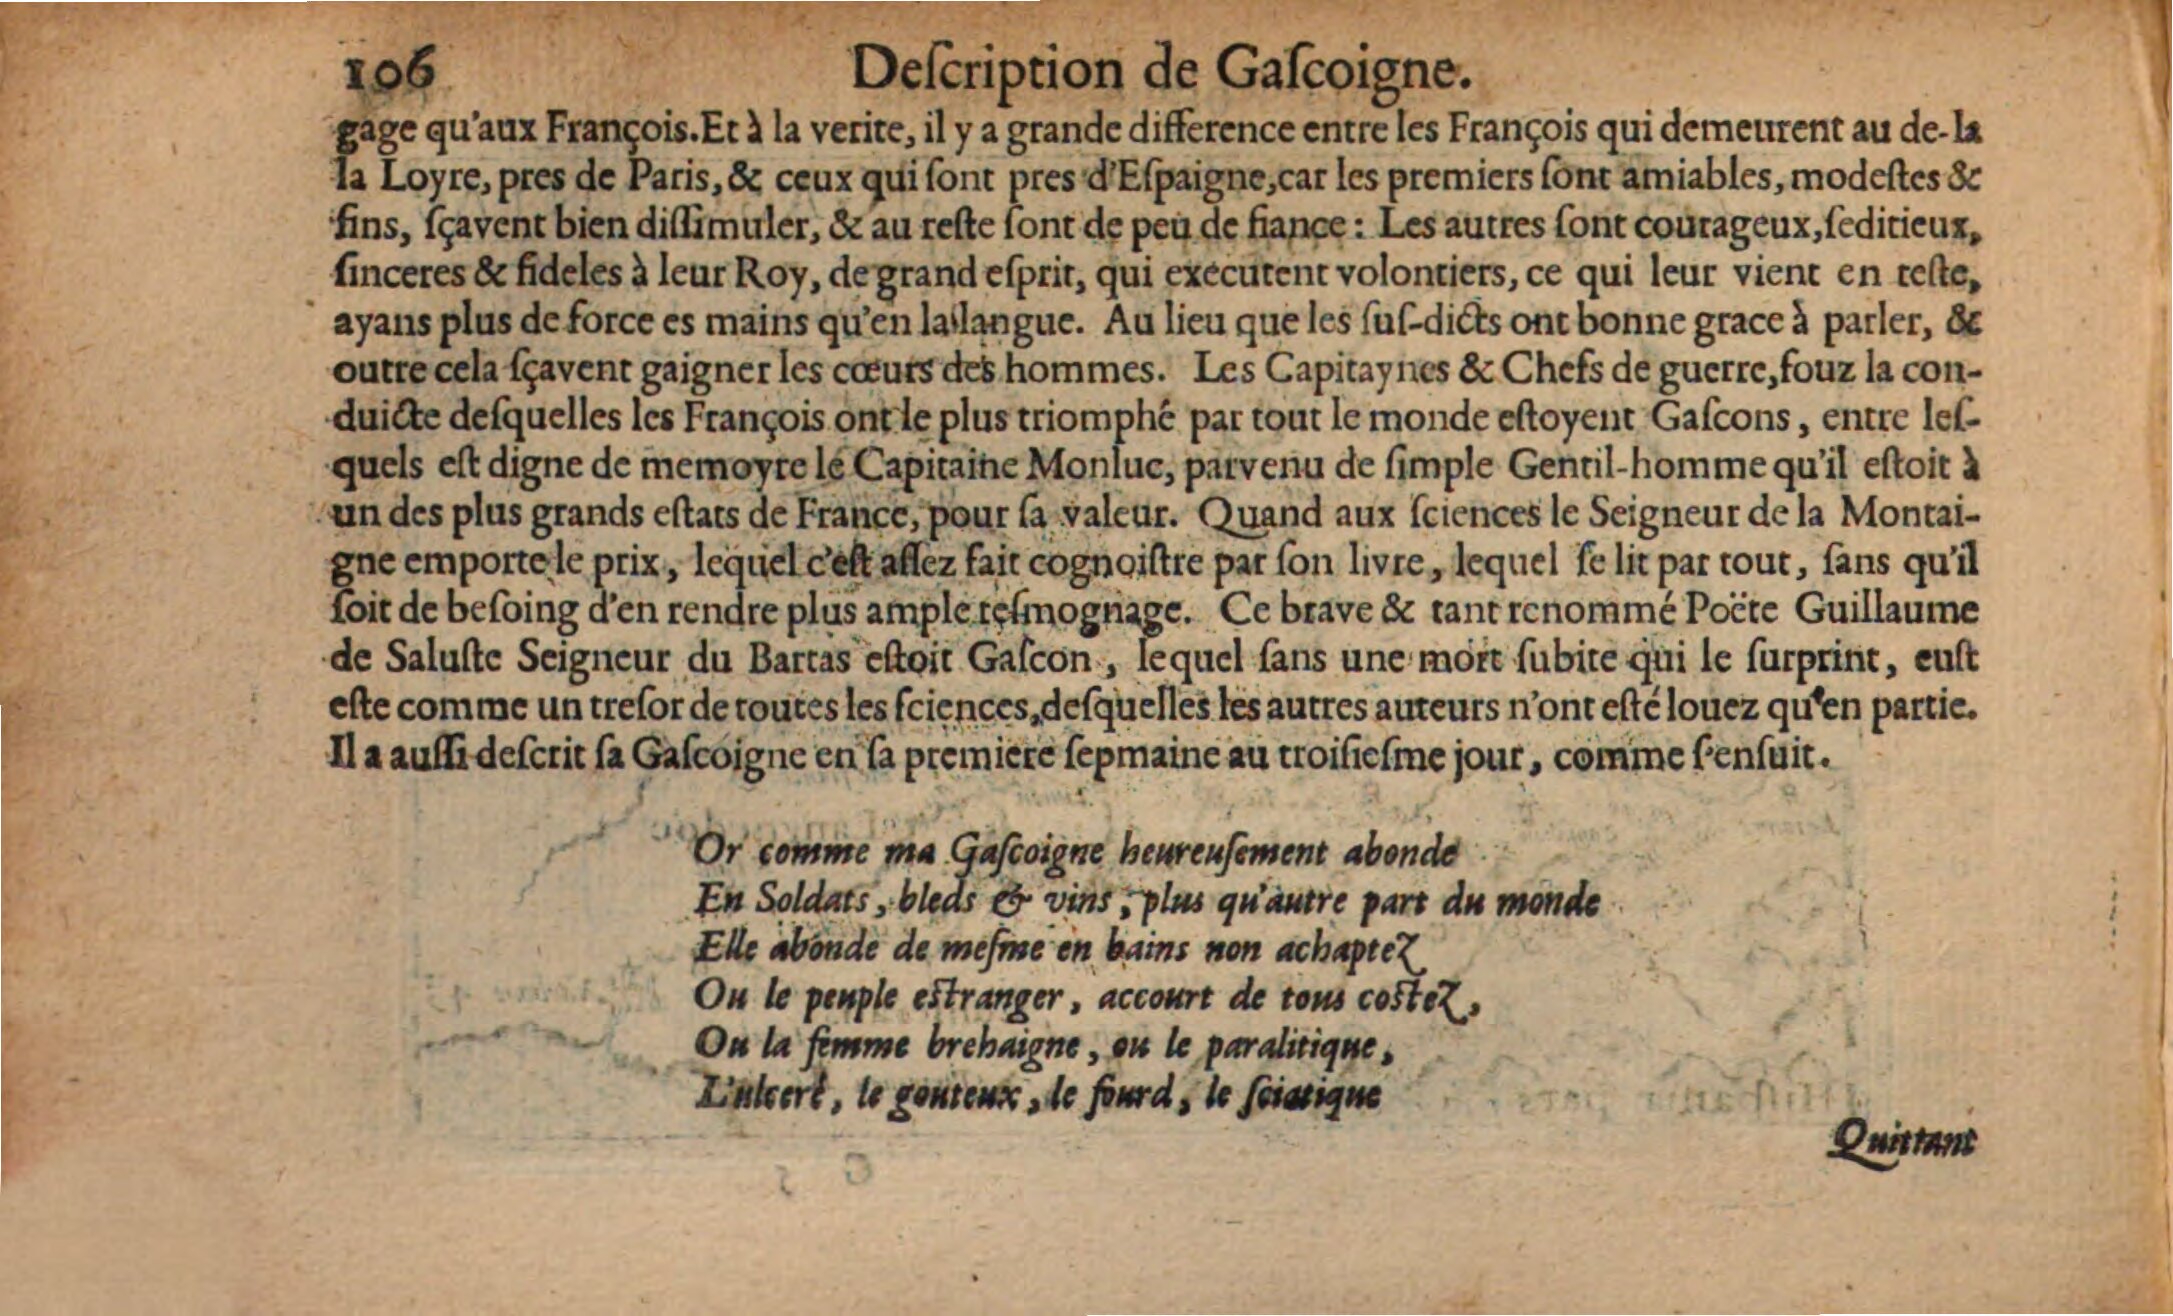 106 Deſcription de Gaſcoigne.
gage qu'aux François. Et à la verite, il y a grande difference entre les François qui demeurent au de-la
la Loyre, pres de Paris, & ceux qui ſont pres d'Eſpaigne, car les premiers ſont amiables, modeſtes &
fins, ſçavent bien diſſimuler, & au reſte ſont de peu de fiance: Les autres ſont courageux, ſeditieux,
ſinceres & fideles à leur Roy, de grand eſprit, qui executent volontiers, ce qui leur vient en teſte,
ayans plus de force es mains qu'en la langue. Au lieu que les ſuſ-dicts ont bonne grace à parler, &
outre cela ſçavent gaigner les cœurs des hommes. Les Capitaynes & Chefs de guerre, fouz la con-
duicte deſquelles les François ont le plus triomphé par tout le monde eſtoyent Gaſcons, entre leſ-
quels eſt digne de memoyre le Capitaine Monluc, parvenu de ſimple Gentil-homme qu'il eſtoit à
un des plus grands eſtats de France, pour ſa valeur. Quand aux ſciences le Seigneur de la Montai-
gne emporte le prix, lequel c'eſt aſſez fait cognoiſtre par ſon livre, lequel ſe lit par tout, ſans qu'il
ſoit de beſoing d'en rendre plus ample teſmognage. Ce brave & tant renommé Poëte Guillaume
de Saluſte Seigneur du Bartas eſtoit Gaſcon, lequel ſans une mort ſubite qui le ſurprint, euſt
eſte comme un treſor de toutes les ſciences, deſquelles les autres auteurs n'ont eſté louez qu'en partie.
Il a auſſi deſcrit ſa Gaſcoigne en ſa premiere ſepmaine au troiſieſme jour, comme ſ'enſuit.
Or comme ma Gaſcoigne heureuſement abonde
En Soldats, bleds & vins, plus qu'autre part du monde
Elle abonde de meſme en bains non achaptez
Ou le peuple eſtranger, accourt de tous coſtez,
Ou la femme brehaigne, ou le paralitique,
L'ulceré, le gouteux, le ſourd, le ſciatique
Quittant